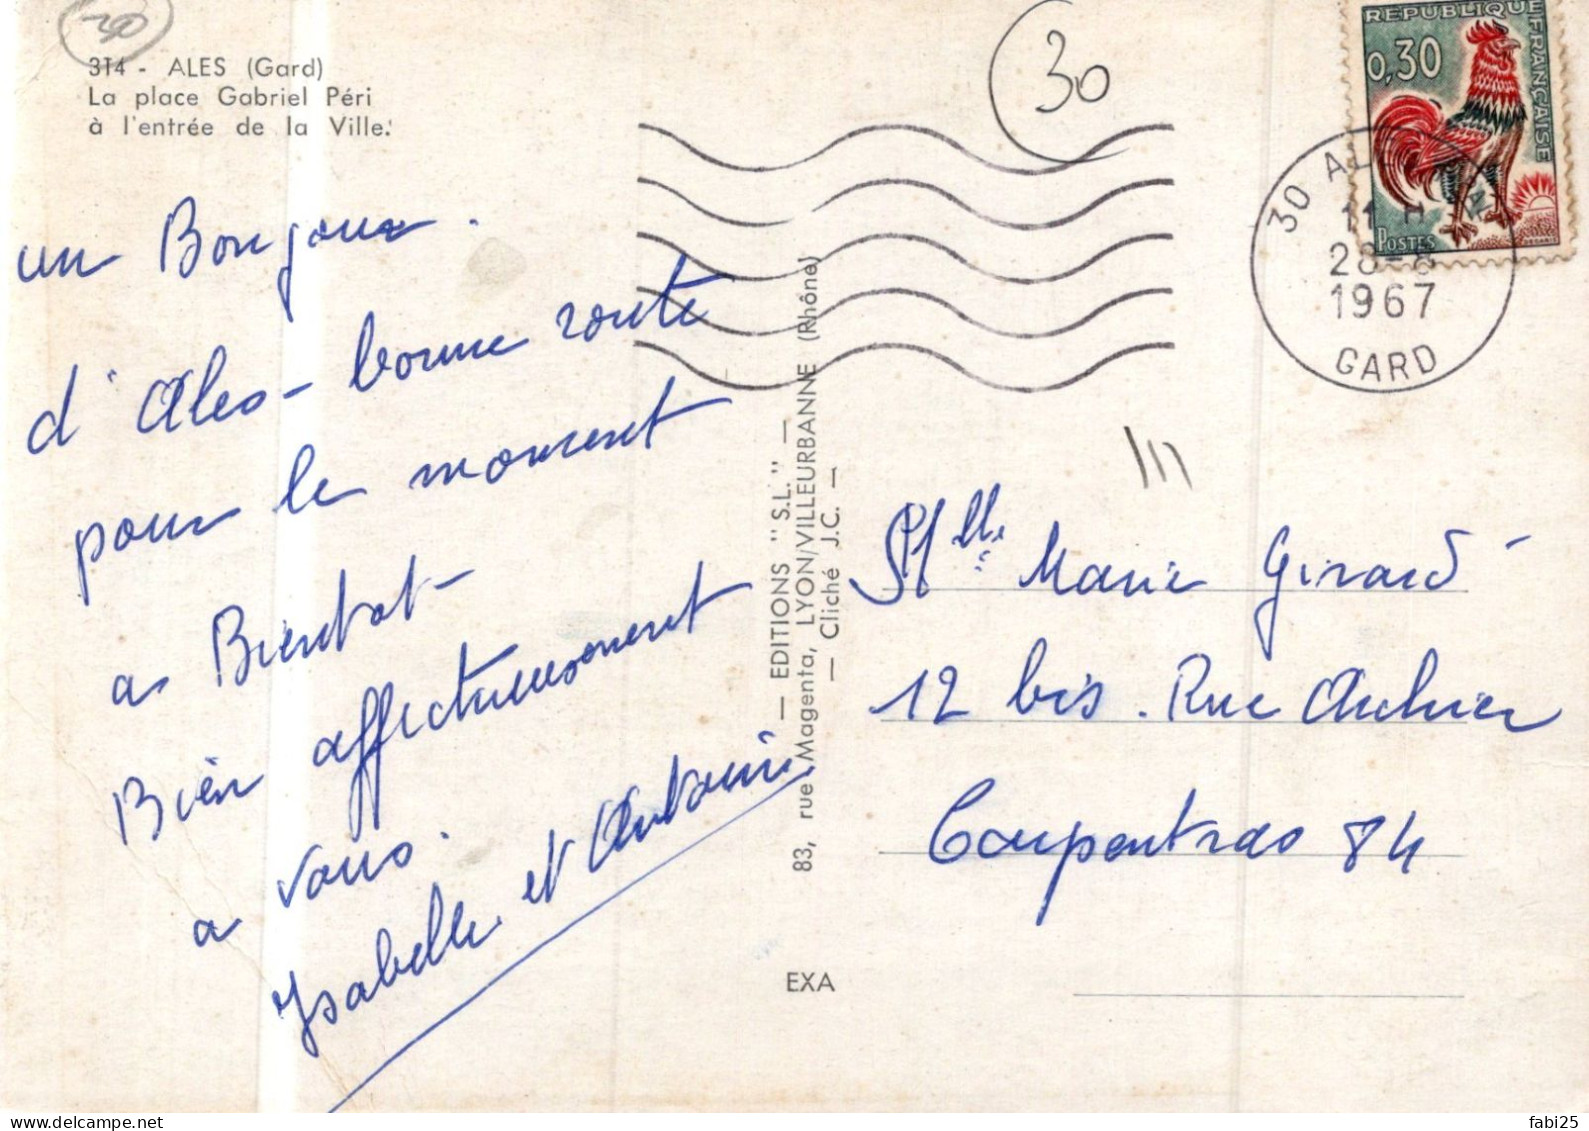 30
314 - ALES (Gard)
La place Gabriel Péri
à l'entrée de la Ville.
un Bonjour.
d'Ales - bonne route
pour le moment
a Bientot -
Bien affectueusement
a vous.
Isabelle et Antoine
— EDITIONS "S.L." —
83, rue Magenta, LYON/VILLEURBANNE (Rhône)
— Cliché J.C. —
EXA
30
REPUBLIQUE FRANÇAISE
0,30
POSTES
30 ALES
11 H
28-8
1967
GARD
Mlle Marie Girard -
12 bis. Rue
Carpentras 84
delcampe.net
fabi25